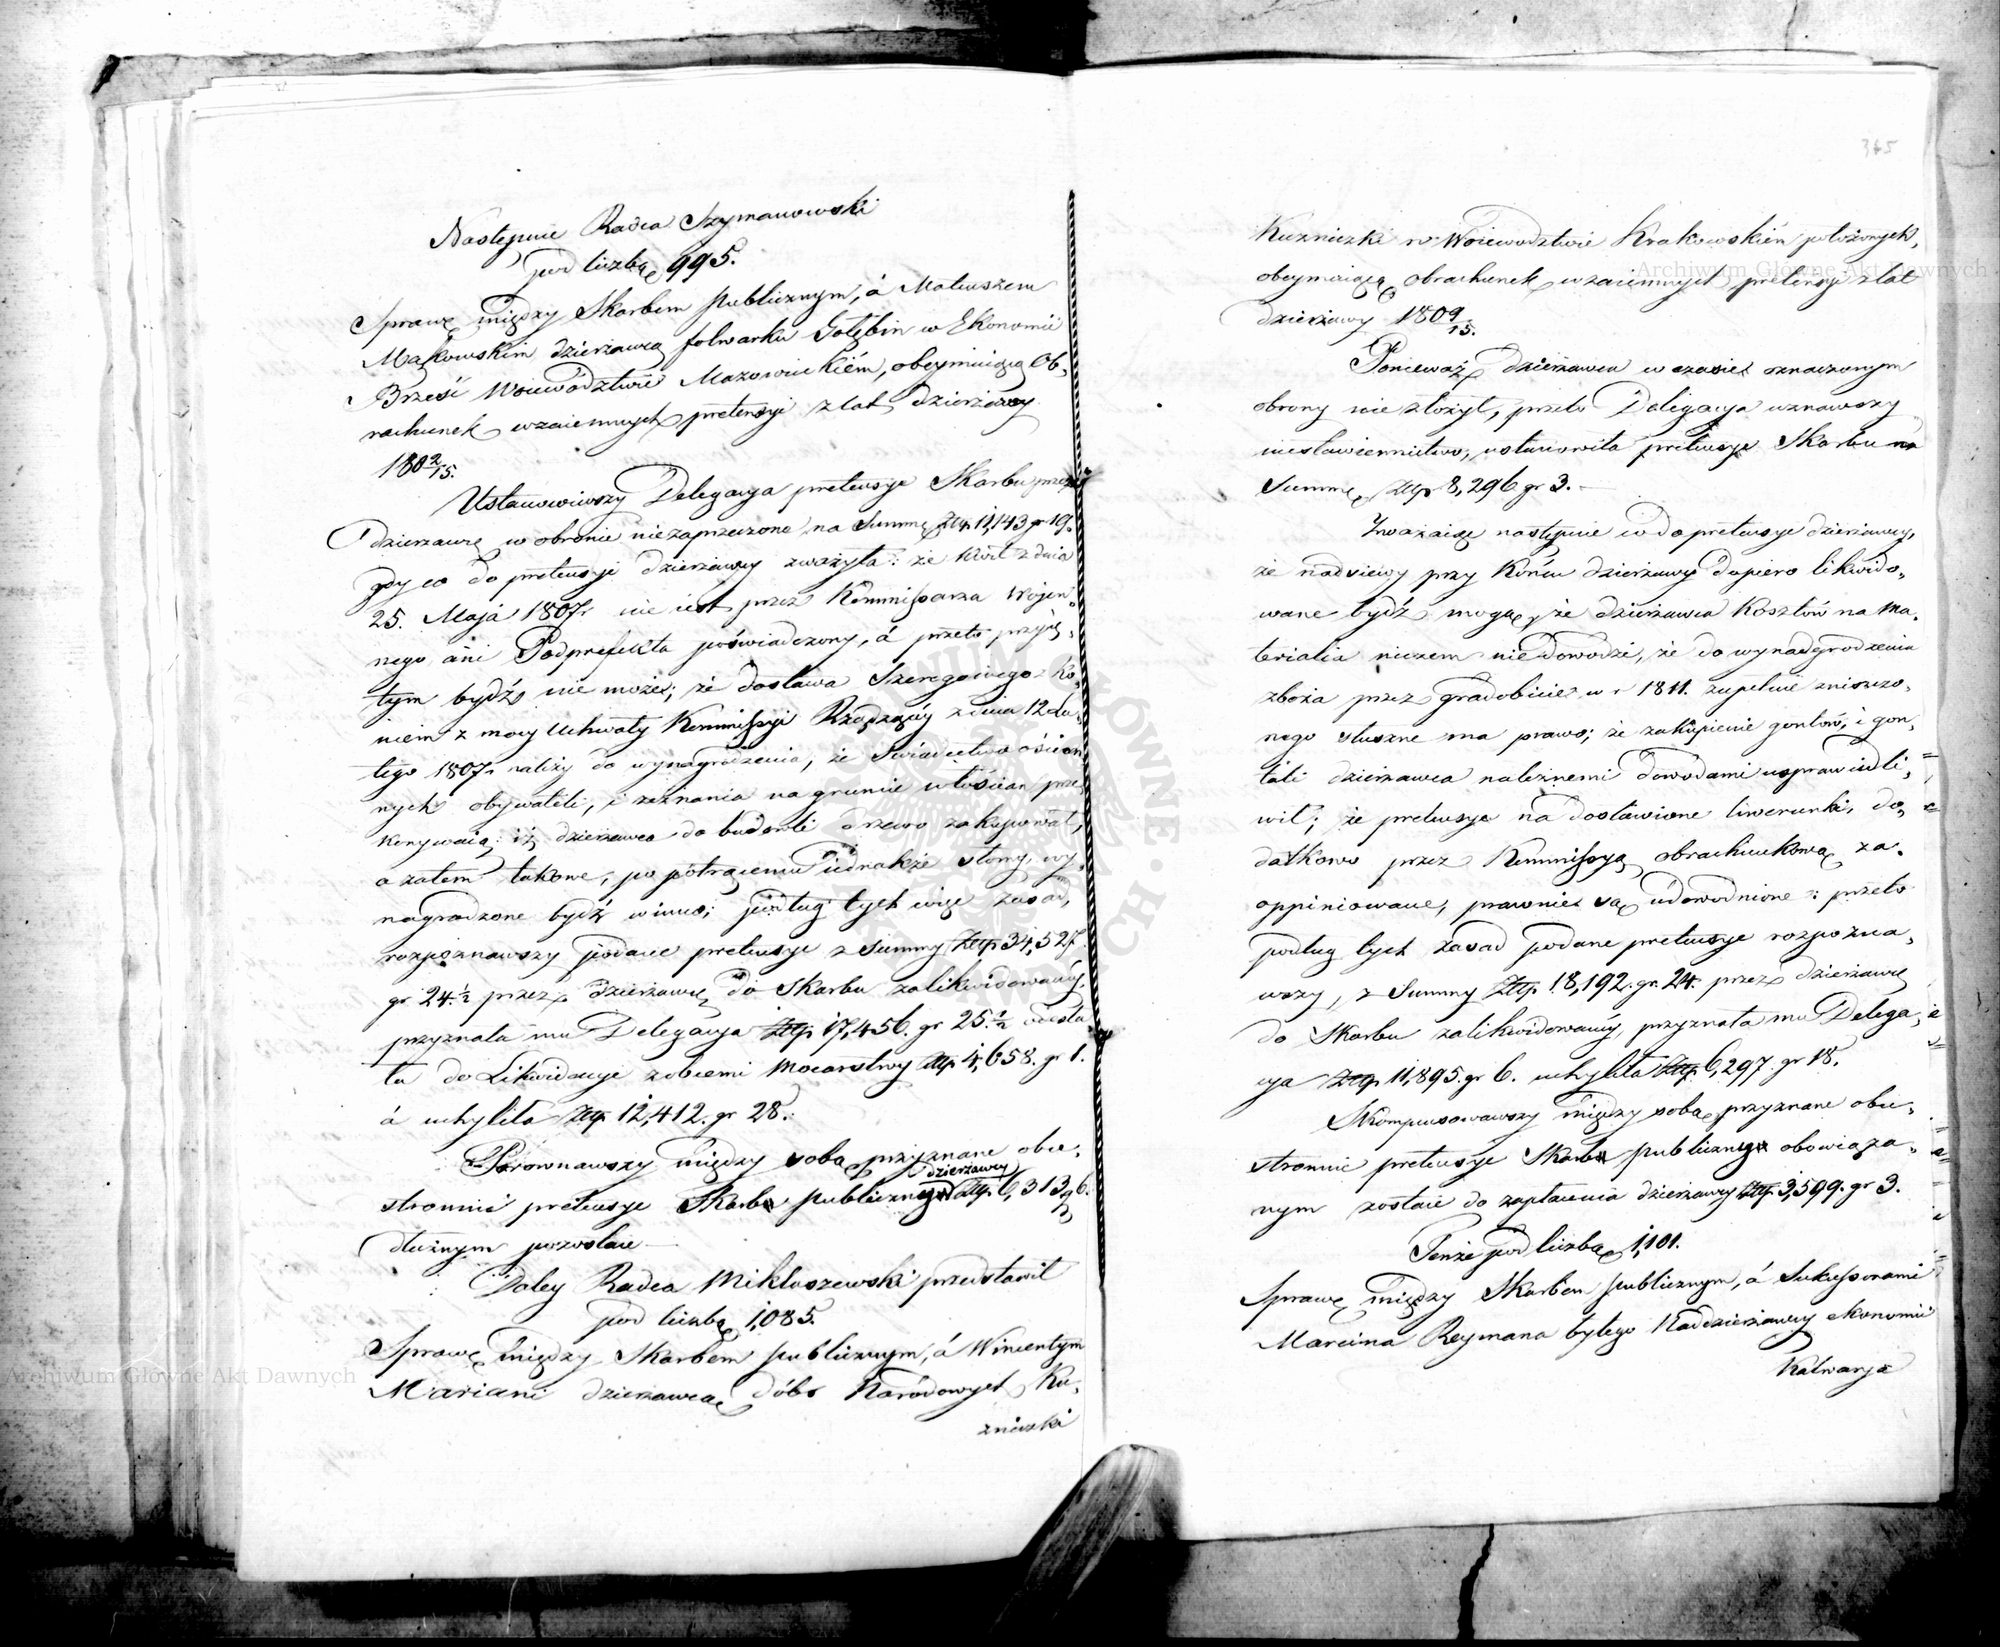 Następnie Radca Szymanowski
pod liczbą 995.
Sprawę między Skarbem publicznym, á Mateuszem
Mąkowskim dzierżawcą folwarku Gołębin w Ekonomii
Brześć Woiewództwie Mazowieckiém, obeymuiącą Ob-
rachunek wzaiemnych pretensyi z lat dzierżawy
1802/15.
Ustanowiwszy Delegacya pretensye Skarbu przez
dzierżawcę w obronie niezaprzeczone na Summę Złp 11,143 gr 19.
gdy co do pretensyi dzierżawcy zważyła: że kwit z dnia
25. Maja 1807r nie iest przez Kommissarza Wojen-
nego ani Podprefekta poświadczony, á przeto przyię-
tym bydź nie może; że dostawa Szeregowego z ko-
niem z mocy Uchwały Kommissyi Rządzącéy z dnia 12 Lu-
tego 1807r należy do wynagrodzenia, że Świadectwo ościen-
nych obywateli, i zeznania na gruncie włościan prze-
konywaią: iż dzierżawca do budowli drzewo zakupował,
a zatem takowe, po potrąceniu iednakże słomy wy-
nagrodzone bydź winno; podług tych więc zasad,
rozpoznawszy podane pretensye z Summy Złp 34,527
gr 24.½ przez dzierżawcę do Skarbu zalikwidowanéy,
przyznała mu Delegacya Złp 17,456. gr 25.½ odesła-
ła do Likwidacyi z obcemi Mocarstwy Złp 4,658. gr 1.
á uchyliła Złp 12,412. gr 28.
Porównawszy między sobą przyznane obu-
dzierżawcy
stronnie pretensye Skarb publiczny Złp. 6,313 gr 6.
dłużnym pozostaie
Daley Radca Mikluszewski przedstawił
pod liczbą 1,085.
Sprawę między Skarbem publicznym, á Wincentym
Mariani dzierżawcą dóbr Narodowych Ku-
zniczki
365
Kuzniczki w Woiewództwie Krakowskién położonych,
obeymuiącą obrachunek wzaiemnych pretensyi z lat
dzierżawy 1809/15.
Ponieważ dzierżawca w czasie oznaczonym
obrony nie złożył, przeto Delegacya uznawszy
niestawiennictwo, ustanowiła pretensye Skarbu na
Summę Złp 8,296 gr 3.
Zważaiąc następnie co do pretensyi dzierżawcy,
że nadsiewy przy końcu dzierżawy dopiero likwido-
wane bydź mogą, że dzierżawca kosztów na ma-
terialia niczem nie dowodzi, że do wynadgrodzenia
zboża przez gradobicie w r 1811. zupełnie zniszczo-
nego słuszne ma prawo; że zakupienie gontów, i gon-
tali dzierżawca należnemi dowodami usprawiedli-
wił; że pretensye na dostawione liwerunki, do-
datkowo przez Kommissyą obrachunkową za-
oppiniowane, prawnie są udowodnione: przeto
podług tych zasad podane pretensye rozpozna-
wszy, z Summy Złp. 18,192. gr. 24. przez dzierżawcę
do Skarbu zalikwidowanéy, przyznała mu Delega-
cya Złp 11,895. gr 6. uchyliła Złp 6,297. gr 18.
Skompensowawszy między sobą przyznane obu-
stronnie pretensye Skarb publiczny obowiąza-
nym zostaie do zapłacenia dzierżawcy Złp 3,599. gr 3.
Tenże pod liczbą 1,101.
Sprawę między Skarbem publicznym, á Sukcessorami
Marcina Reymana byłego Naddzierżawcy ekonomii
Kalwarya
Archiwum Główne Akt Dawnych
Archiwum Główne Akt Dawnych